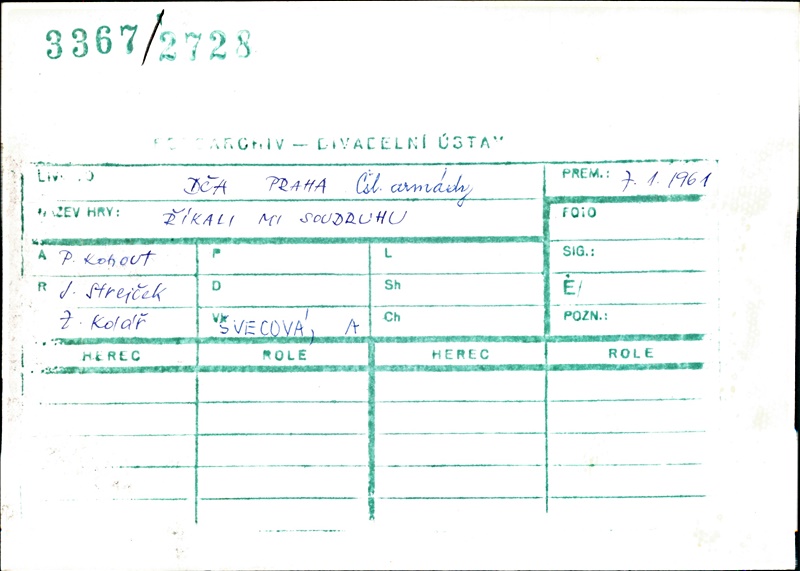 3367/2728
ARCHIV — DIVADELNÍ ÚSTAV
DČA PRAHA Čsl. armády PREM.: 7.1.1961
NÁZEV HRY: ŘÍKALI MI SOUDRUHU FOTO
A P. Kohout P L SIG.:
R J. Strejček D Sh Č/
Z. Kolář Vk ŠVECOVÁ, A Ch POZN.:
HEREC ROLE HEREC ROLE